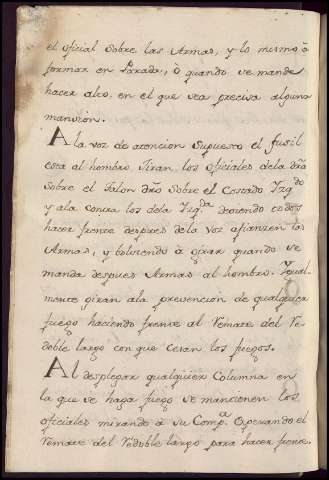 el oficial sobre las Armas, y lo mismo à
formar en Parada, ò quando se mande
hacer alto, en el que sea precisa alguna
mansion.
A la voz de atencion supuesto el fusil
esta al hombro, Giran los oficiales dela dra
sobre el talon dro sobre el Costado Yzqdo
y ala contra los dela Yzqda deviendo todos
hacer frente despues dela voz afiancen las
Armas, y bolviendo à girar quando se
manda despues Armas al hombro. Ygual-
mente giran ala prevencion de qualquier
fuego haciendo frente al Remate del Re-
doble largo con que cesan los fuegos.
Al desplegar qualquier Columna en
la que se haga fuego se mantienen los
oficiales mirando à su Compa. Operando el
Remate del Redoble largo para hacer frente.